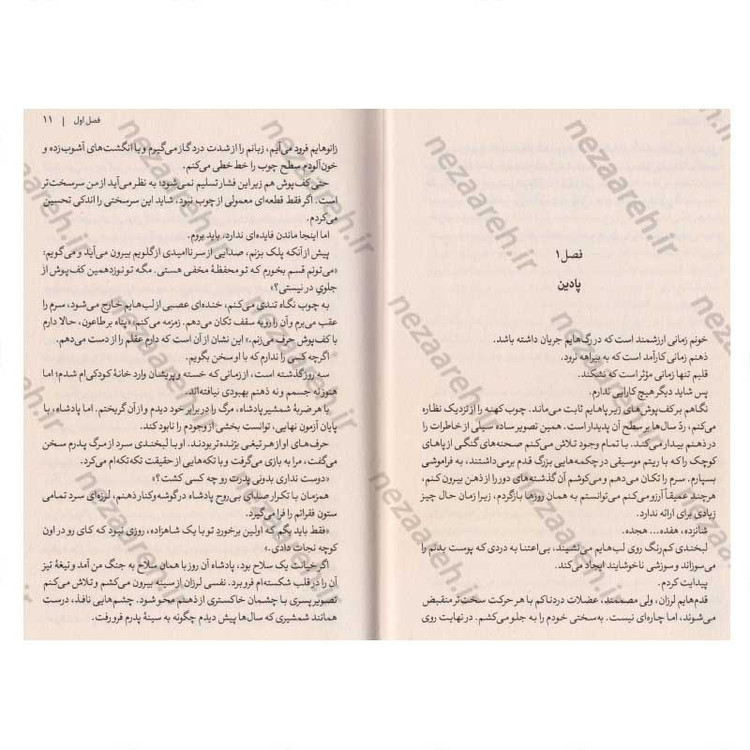 فصل ۱
پادین
خونم زمانی ارزشمند است که در رگ‌هایم جریان داشته باشد.
ذهنم زمانی کارآمد است که به بیراهه نرود.
قلبم تنها زمانی مؤثر است که نشکند.
پس شاید دیگر هیچ کارایی ندارم.
نگاهم بر کف‌پوش‌های زیر پاهایم ثابت می‌ماند. چوب کهنه را از نزدیک نظاره
می‌کنم، ردّ سال‌ها بر سطح آن پدیدار است. همین تصویر ساده سیلی از خاطرات را
در ذهنم بیدار می‌کند. با تمام وجود تلاش می‌کنم صحنه‌های گنگی از پاهای
کوچک را که با ریتم موسیقی در چکمه‌هایی بزرگ قدم برمی‌داشتند، به فراموشی
بسپارم. سرم را تکان می‌دهم و می‌کوشم آن گذشته‌های دور را از ذهن بیرون کنم،
هرچند عمیقاً آرزو می‌کنم می‌توانستم به همان روزها بازگردم، زیرا زمان حال چیز
زیادی برای ارائه ندارد.
شانزده، هفده... هجده.
لبخندی کم‌رنگ روی لب‌هایم می‌نشیند، بی‌اعتنا به دردی که پوست بدنم را
می‌سوزاند و سوزشی ناخوشایند ایجاد می‌کند.
پیدایت کردم.
قدم‌هایم لرزان، ولی مصمم‌ند، عضلات دردناکم با هر حرکت سخت‌تر منقبض
می‌شوند، اما چاره‌ای نیست. به‌سختی خودم را به جلو می‌کشم. در نهایت روی
فصل اول | ۱۱
زانوهایم فرود می‌آیم، زبانم را از شدت درد گاز می‌گیرم و با انگشت‌های آشوب‌زده و
خون‌آلودم سطح چوب را خط‌خطی می‌کنم.
حتی کف‌پوش هم زیر این فشار تسلیم نمی‌شود؛ به نظر می‌آید از من سرسخت‌تر
است. اگر فقط قطعه‌ای معمولی از چوب نبود، شاید این سرسختی را اندکی تحسین
می‌کردم.
اما اینجا ماندن فایده‌ای ندارد. باید بروم.
پیش از آنکه پلک بزنم، صدایی از سر ناامیدی از گلویم بیرون می‌آید و می‌گویم:
«می‌تونم قسم بخورم که تو محفظهٔ مخفی هستی. مگه تو نوزدهمین کف‌پوش از
جلوی در نیستی؟»
به چوب نگاه تندی می‌کنم، خنده‌ای عصبی از لب‌هایم خارج می‌شود، سرم را
عقب می‌برم و آن را رو به سقف تکان می‌دهم. زمزمه می‌کنم: «پناه بر طاعون، حالا دارم
با کف‌پوش حرف می‌زنم.» این نشان از آن است که دارم عقلم را از دست می‌دهم.
اگرچه کسی را ندارم که با او سخن بگویم.
سه روز گذشته است، از زمانی که خسته و پریشان وارد خانهٔ کودکی‌ام شدم؛ اما
هنوز نه جسمم و نه ذهنم بهبودی نیافته‌اند.
با هر ضربهٔ شمشیر پادشاه، مرگ را در برابر خود دیدم و از آن گریختم. اما پادشاه، با
پایان آزمون نهایی، توانست بخشی از وجودم را نابود کند.
حرف‌های او از هر تیغی برّنده‌تر بودند. او با لبخندی سرد از مرگ پدرم سخن
می‌گفت، مرا به بازی می‌گرفت و با تکه‌هایی از حقیقت تکه‌تکه‌ام می‌کرد.
«دوست نداری بدونی پدرت رو چه کسی کشت؟»
همزمان با تکرار صدای بی‌روح پادشاه در گوشه‌وکنار ذهنم، لرزه‌ای سرد تمامی
ستون فقراتم را فرا می‌گیرد.
«فقط باید بگم که اولین برخوردِ تو با یک شاهزاده، روزی نبود که کای رو در اون
کوچه نجات دادی.»
اگر خیانت یک سلاح بود، پادشاه آن روز با همان سلاح به جنگ من آمد و تیغهٔ تیز
آن را در قلب شکسته‌ام فرو برد. نفسی لرزان از سینه بیرون می‌کشم و تلاش می‌کنم
تصویر پسری با چشمان خاکستری از ذهنم محو شود. چشم‌هایی نافذ، درست
همانند شمشیری که سال‌ها پیش دیدم چگونه به سینهٔ پدرم فرورفت.
nezaareh.ir